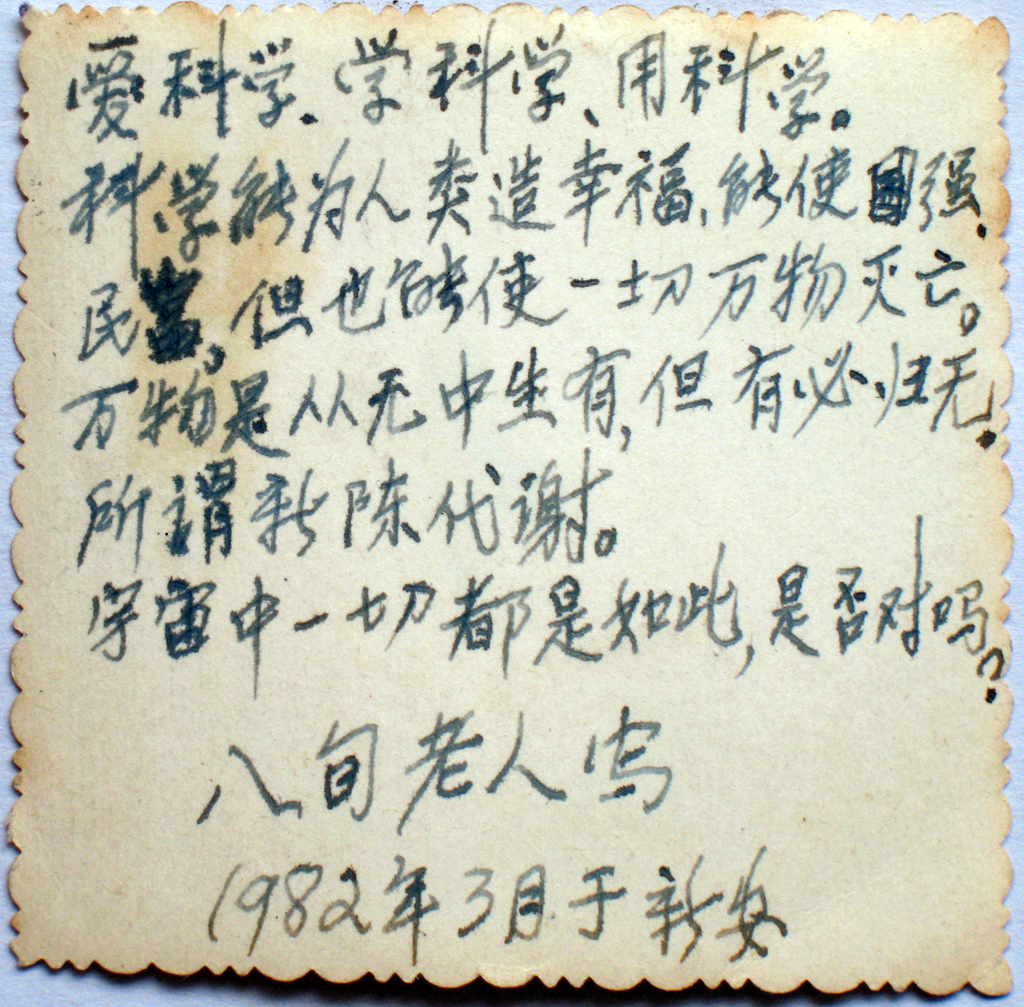 爱科学、学科学、用科学。
科学能为人类造幸福、能使国强、
民富，但也能使一切万物灭亡。
万物是从无中生有，但有必归无，
所谓新陈代谢。
宇宙中一切都是如此，是否对吗？
八旬老人写
1982年3月于新安